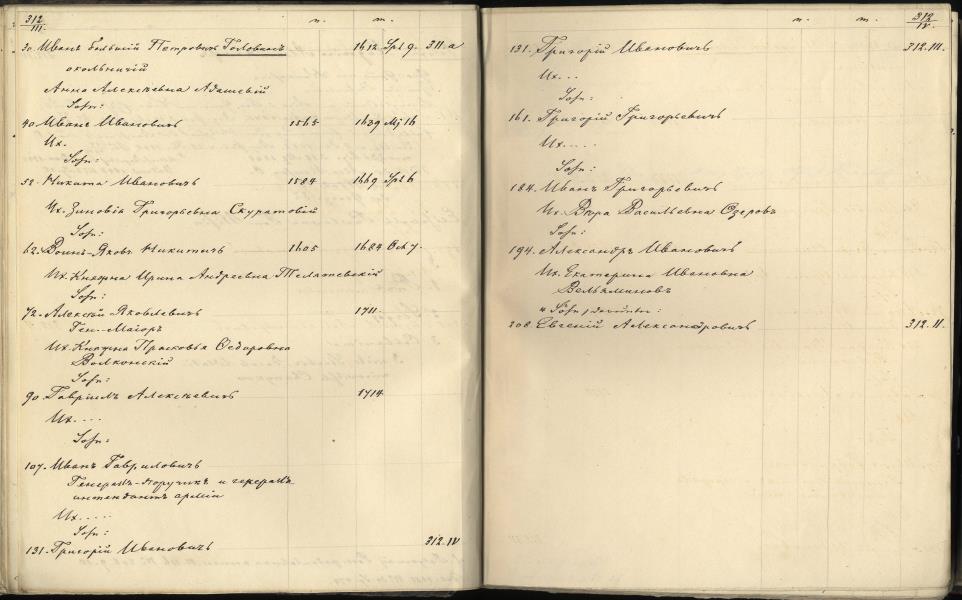 312
III.
n. m.
30. Иванъ Большiй Петровичъ Головинъ 1612 Spt 9. 311.a
окольничiй
Анна Алексѣевна Адашевiй
Sohn:
40. Иванъ Ивановичъ 1565 1639 Mj 16
Ux.
Sohn:
52. Никита Ивановичъ 1584 1669 Spt 6
Ux. Зиновiя Григорьевна Скуратовiй
Sohn:
62. Воинъ-Яковъ Никитичъ 1605 1684 Oct 7.
Ux. Княжна Ирина Андреевна Телятевскiй
Sohn:
72. Алексѣй Яковлевичъ 1711.
Ген.-Маiоръ
Ux. Княжна Прасковья Ѳедоровна
Волконскiй
Sohn:
90. Гаврiилъ Алексѣевичъ 1714
Ux. . . .
Sohn:
107. Иванъ Гавриловичъ
Генералъ-поручикъ и генералъ-
интендантъ армiи
Ux. . . . .
Sohn:
131. Григорiй Ивановичъ 312.IV
n. m.
312
IV.
131. Григорiй Ивановичъ 312.III.
Ux. . .
Sohn:
161. Григорiй Григорьевичъ
Ux. . . .
Sohn:
184. Иванъ Григорьевичъ
Ux. Вѣра Васильевна Озеровъ
Sohn:
194. Александръ Ивановичъ
Ux. Екатерина Ивановна
Вельяминовъ
Sohn
208. Евгенiй Александровичъ 312.II.